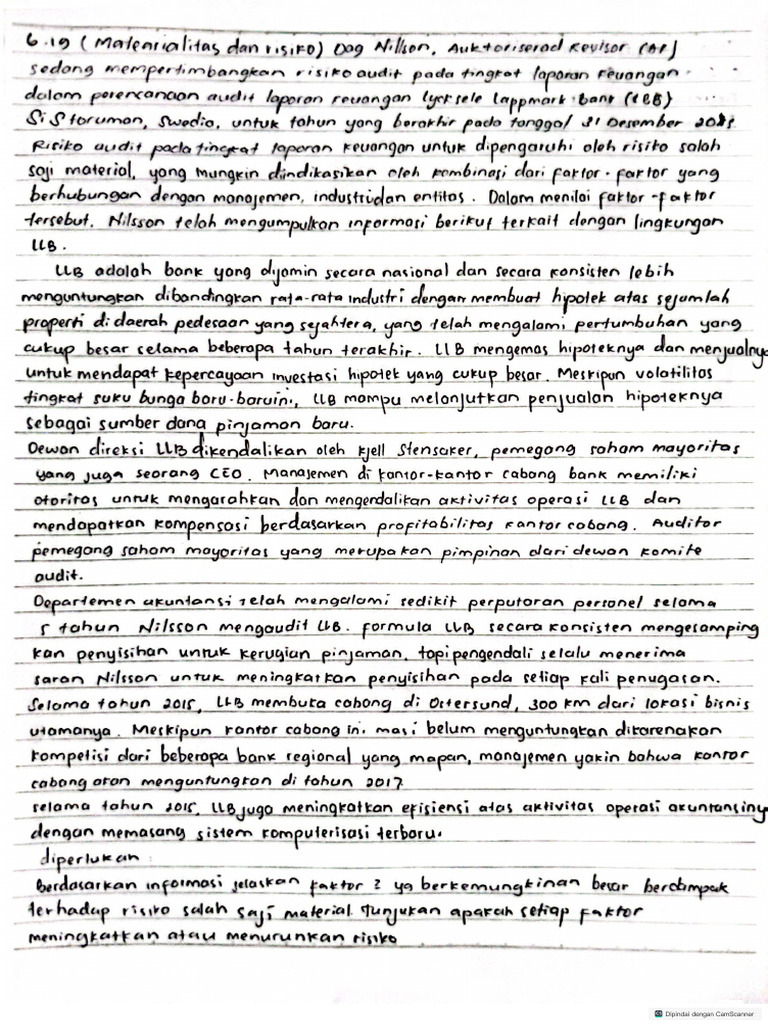 6.19 (Materialitas dan risiko) Dag Nillson, Auktoriserad Revisor (AR)
sedang mempertimbangkan risiko audit pada tingkat laporan keuangan
dalam perencanaan audit laporan keuangan lycksele Lappmark bank (LBB)
Si Storuman, Swedia, untuk tahun yang berakhir pada tanggal 31 Desember 2015
Risiko audit pada tingkat laporan keuangan untuk dipengaruhi oleh risiko salah
saji material, yang mungkin diindikasikan oleh kombinasi dari faktor-faktor yang
berhubungan dengan manajemen, industri dan entitas. Dalam menilai faktor-faktor
tersebut, Nilsson telah mengumpulkan informasi berikut terkait dengan lingkungan
LLB.
LLB adalah bank yang dijamin secara nasional dan secara konsisten lebih
menguntungkan dibandingkan rata-rata industri dengan membuat hipotek atas sejumlah
properti di daerah pedesaan yang sejahtera, yang telah mengalami pertumbuhan yang
cukup besar selama beberapa tahun terakhir. LLB mengemas hipoteknya dan menjualnya
untuk mendapat kepercayaan investasi hipotek yang cukup besar. Meskipun volatilitas
tingkat suku bunga baru-baruini, LLB mampu melanjutkan penjualan hipoteknya
sebagai sumber dana pinjaman baru.
Dewan direksi LLB dikendalikan oleh Kjell Stensaker, pemegang saham mayoritas
yang juga seorang CEO. Manajemen di kantor-kantor cabang bank memiliki
otoritas untuk mengarahkan dan mengendalikan aktivitas operasi LLB dan
mendapatkan kompensasi berdasarkan profitabilitas kantor cabang. Auditor
pemegang saham mayoritas yang merupakan pimpinan dari dewan komite
audit.
Departemen akuntansi telah mengalami sedikit perputaran personel selama
5 tahun Nilsson mengaudit LLB. formula LLB secara konsisten mengesamping
kan penyisihan untuk kerugian pinjaman, tapi pengendali selalu menerima
saran Nilsson untuk meningkatkan penyisihan pada setiap kali penugasan.
Selama tahun 2015, LLB membuka cabang di Ostersund, 300 km dari lokasi bisnis
utamanya. Meskipun kantor cabang ini masi belum menguntungkan dikarenakan
kompetisi dari beberapa bank regional yang mapan, manajemen yakin bahwa kantor
cabang akan menguntungkan di tahun 2017
selama tahun 2015, LLB juga meningkatkan efisiensi atas aktivitas operasi akuntansiny
dengan memasang sistem komputerisasi terbaru.
diperlukan :
Berdasarkan informasi jelaskan faktor 2 yg berkemungkinan besar berdampak
terhadap risiko salah saji material. Tunjukan apakah setiap faktor
meningkatkan atau menurunkan risiko
Dipindai dengan CamScanner